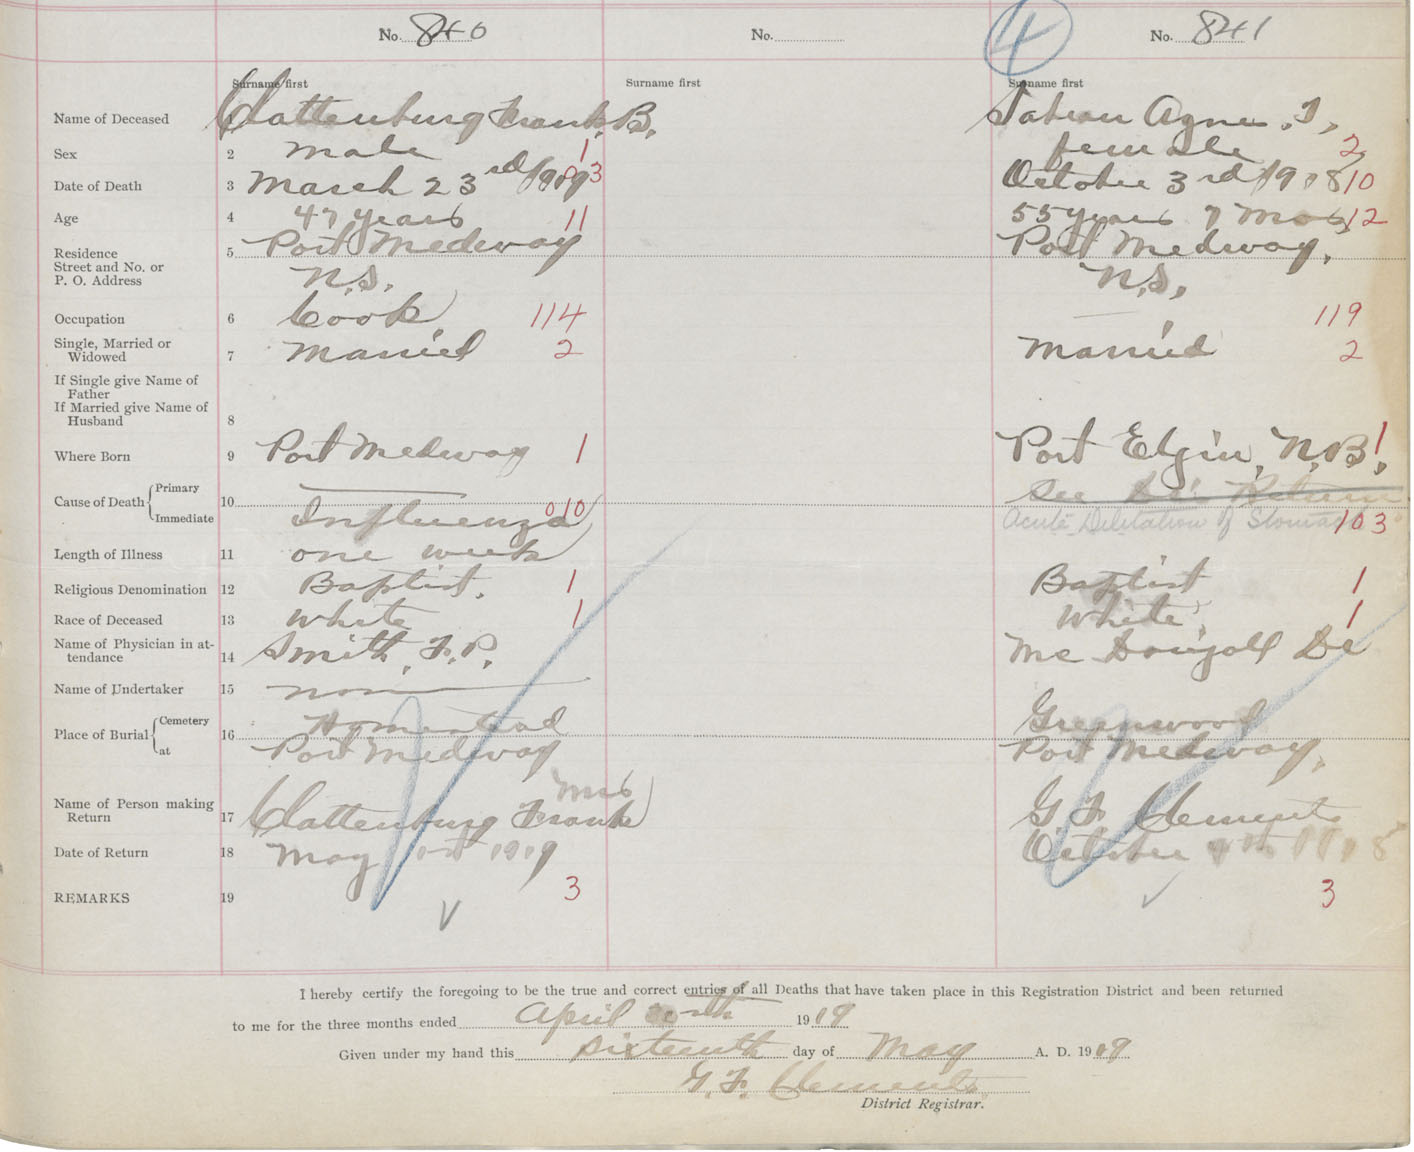 No. 840
No.
4
No. 841
Surname first
Surname first
Surname first
Name of Deceased
Clattenburg Frank B.
Agnes
Sex
2 male 1
female 2
Date of Death
3 March 23rd 1919 3
October 3rd 1918 10
Age
4 47 years 11
55 years 7 mos 12
Residence
Street and No. or
P. O. Address
5 Port Medway
N.S.
Port Medway,
N.S,
Occupation
6 Cook 114
119
Single, Married or
Widowed
7 Married 2
Married 2
If Single give Name of
Father
If Married give Name of
Husband
8
Where Born
9 Port Medway 1
Port Elgin, N.B. 1
Cause of Death Primary
Immediate
10
Influenza 010
See Dr. Return
Acute Dilitation of Stomach 103
Length of Illness
11 one week
Religious Denomination
12 Baptist. 1
Baptist 1
Race of Deceased
13 White 1
White, 1
Name of Physician in at-
tendance
14 Smith, F. P.
McDougall Dr
Name of Undertaker
15 none
Place of Burial Cemetery
at
16
Port Medway
Greenwood
Port Medway,
Name of Person making
Return
17 Clattenburg Mrs Frank
G F Clements
Date of Return
18 May 1919
October 1918
REMARKS
19 3
3
I hereby certify the foregoing to be the true and correct entries of all Deaths that have taken place in this Registration District and been returned
to me for the three months ended April 1919
Given under my hand this sixteenth day of May A. D. 1919
G. F. Clements
District Registrar.